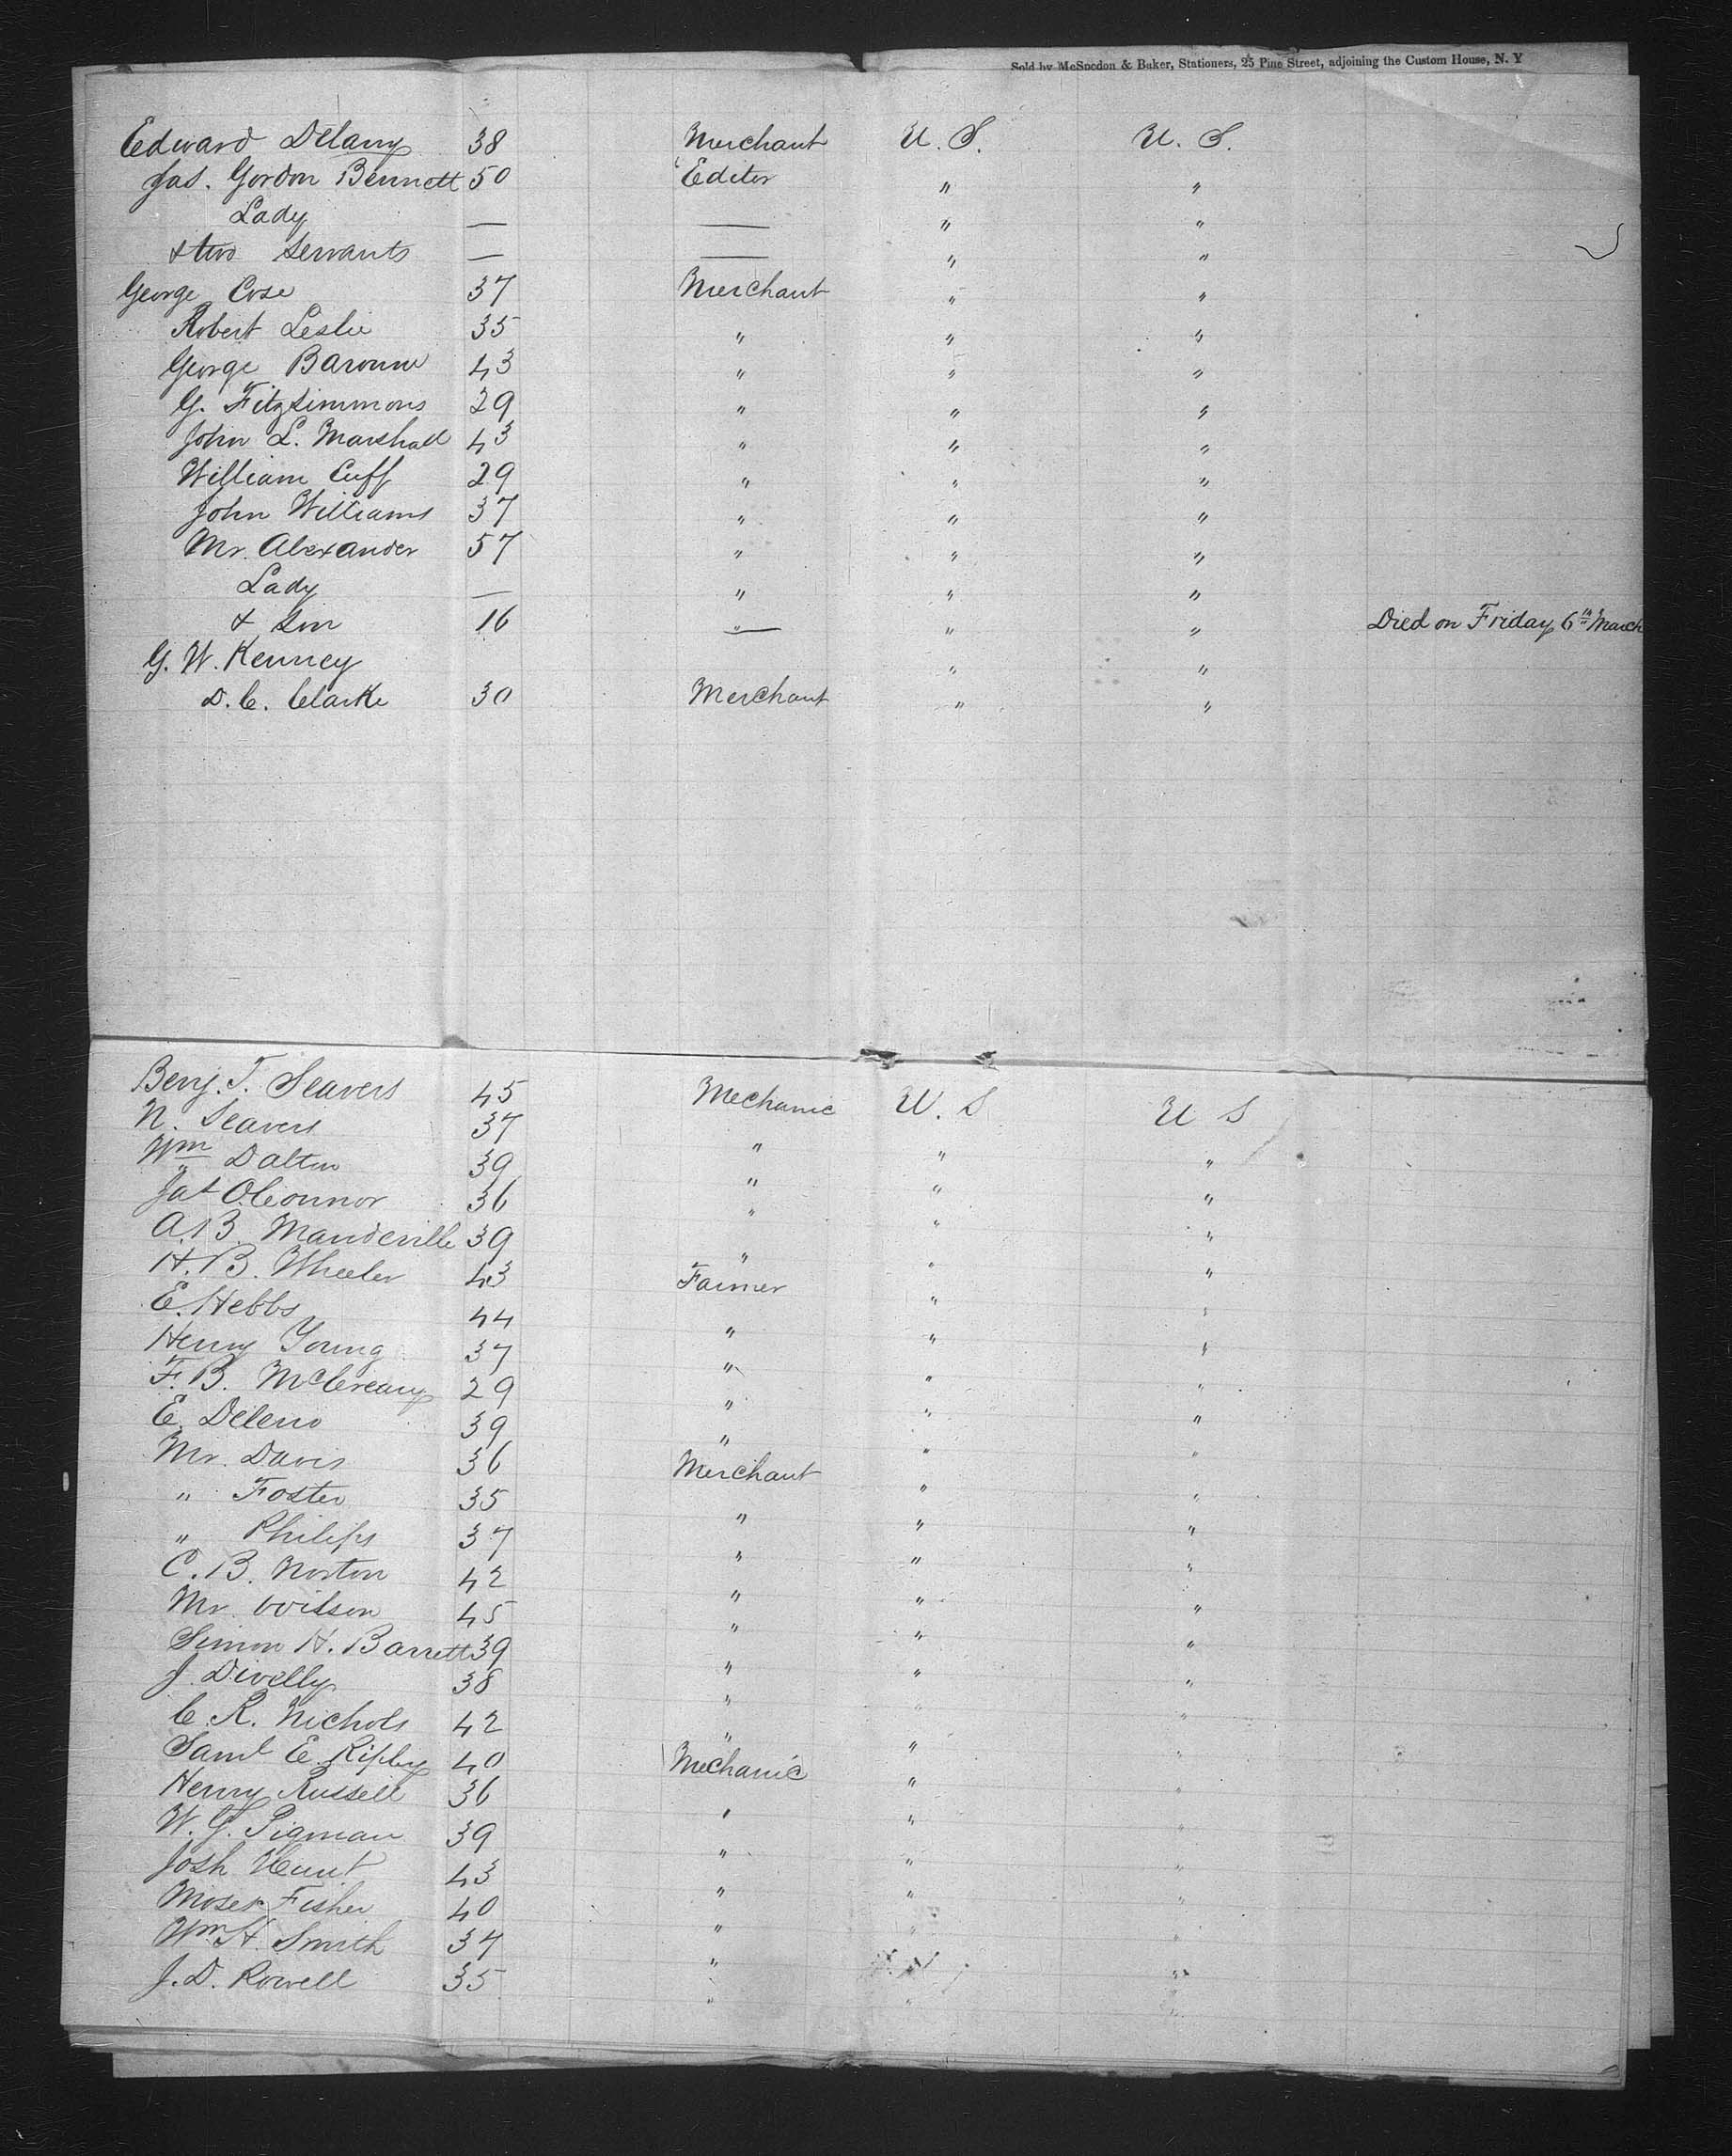 Sold by McSpedon & Baker, Stationers, 25 Pine Street, adjoining the Custom House, N. Y
Edward Delany 38 Merchant U. S. U. S.
Jas. Gordon Bennett 50 Editor " "
Lady — — " "
& two Servants — — " "
George Cose 37 Merchant " "
Robert Leslie 35 " " "
George 43 " " "
G. Fitzsimmons 29 " " "
John L. Marshall 43 " " "
William Cuff 29 " " "
John Williams 37 " " "
Mr. Alexander 57 " " "
Lady — " " "
& Son 16 — " " Died on Friday 6th March
G. W. Kenney " "
D. C. Clarke 30 Merchant " "
Benj. T. Seavers 45 Mechanic U. S U S
N. Seavers 37 " " "
Wm Dalton 39 " " "
Jas O.Connor 36 " " "
A. B. Mandeville 39 " " "
H. B. Wheeler 43 Farmer " "
E. Hebbs 44 " " "
Henry Young 37 " " "
F. B. McCreary 29 " " "
E. Deleno 39 " " "
Mr. Davis 36 Merchant " "
" Foster 35 " " "
" Philips 37 " " "
C. B. Norton 42 " " "
Mr. Wilson 45 " " "
Simon H. Barrett 39 " " "
J. Divelly 38 " " "
C. R. Nichols 42 " " "
Saml E. Ripley 40 Mechanic " "
Henry Russell 36 " " "
W. G. Pigman 39 " " "
Josh Hunt 43 " " "
Moses Fisher 40 " " "
Wm H. Smith 37 " " "
J. D. Rowell 35 " " "